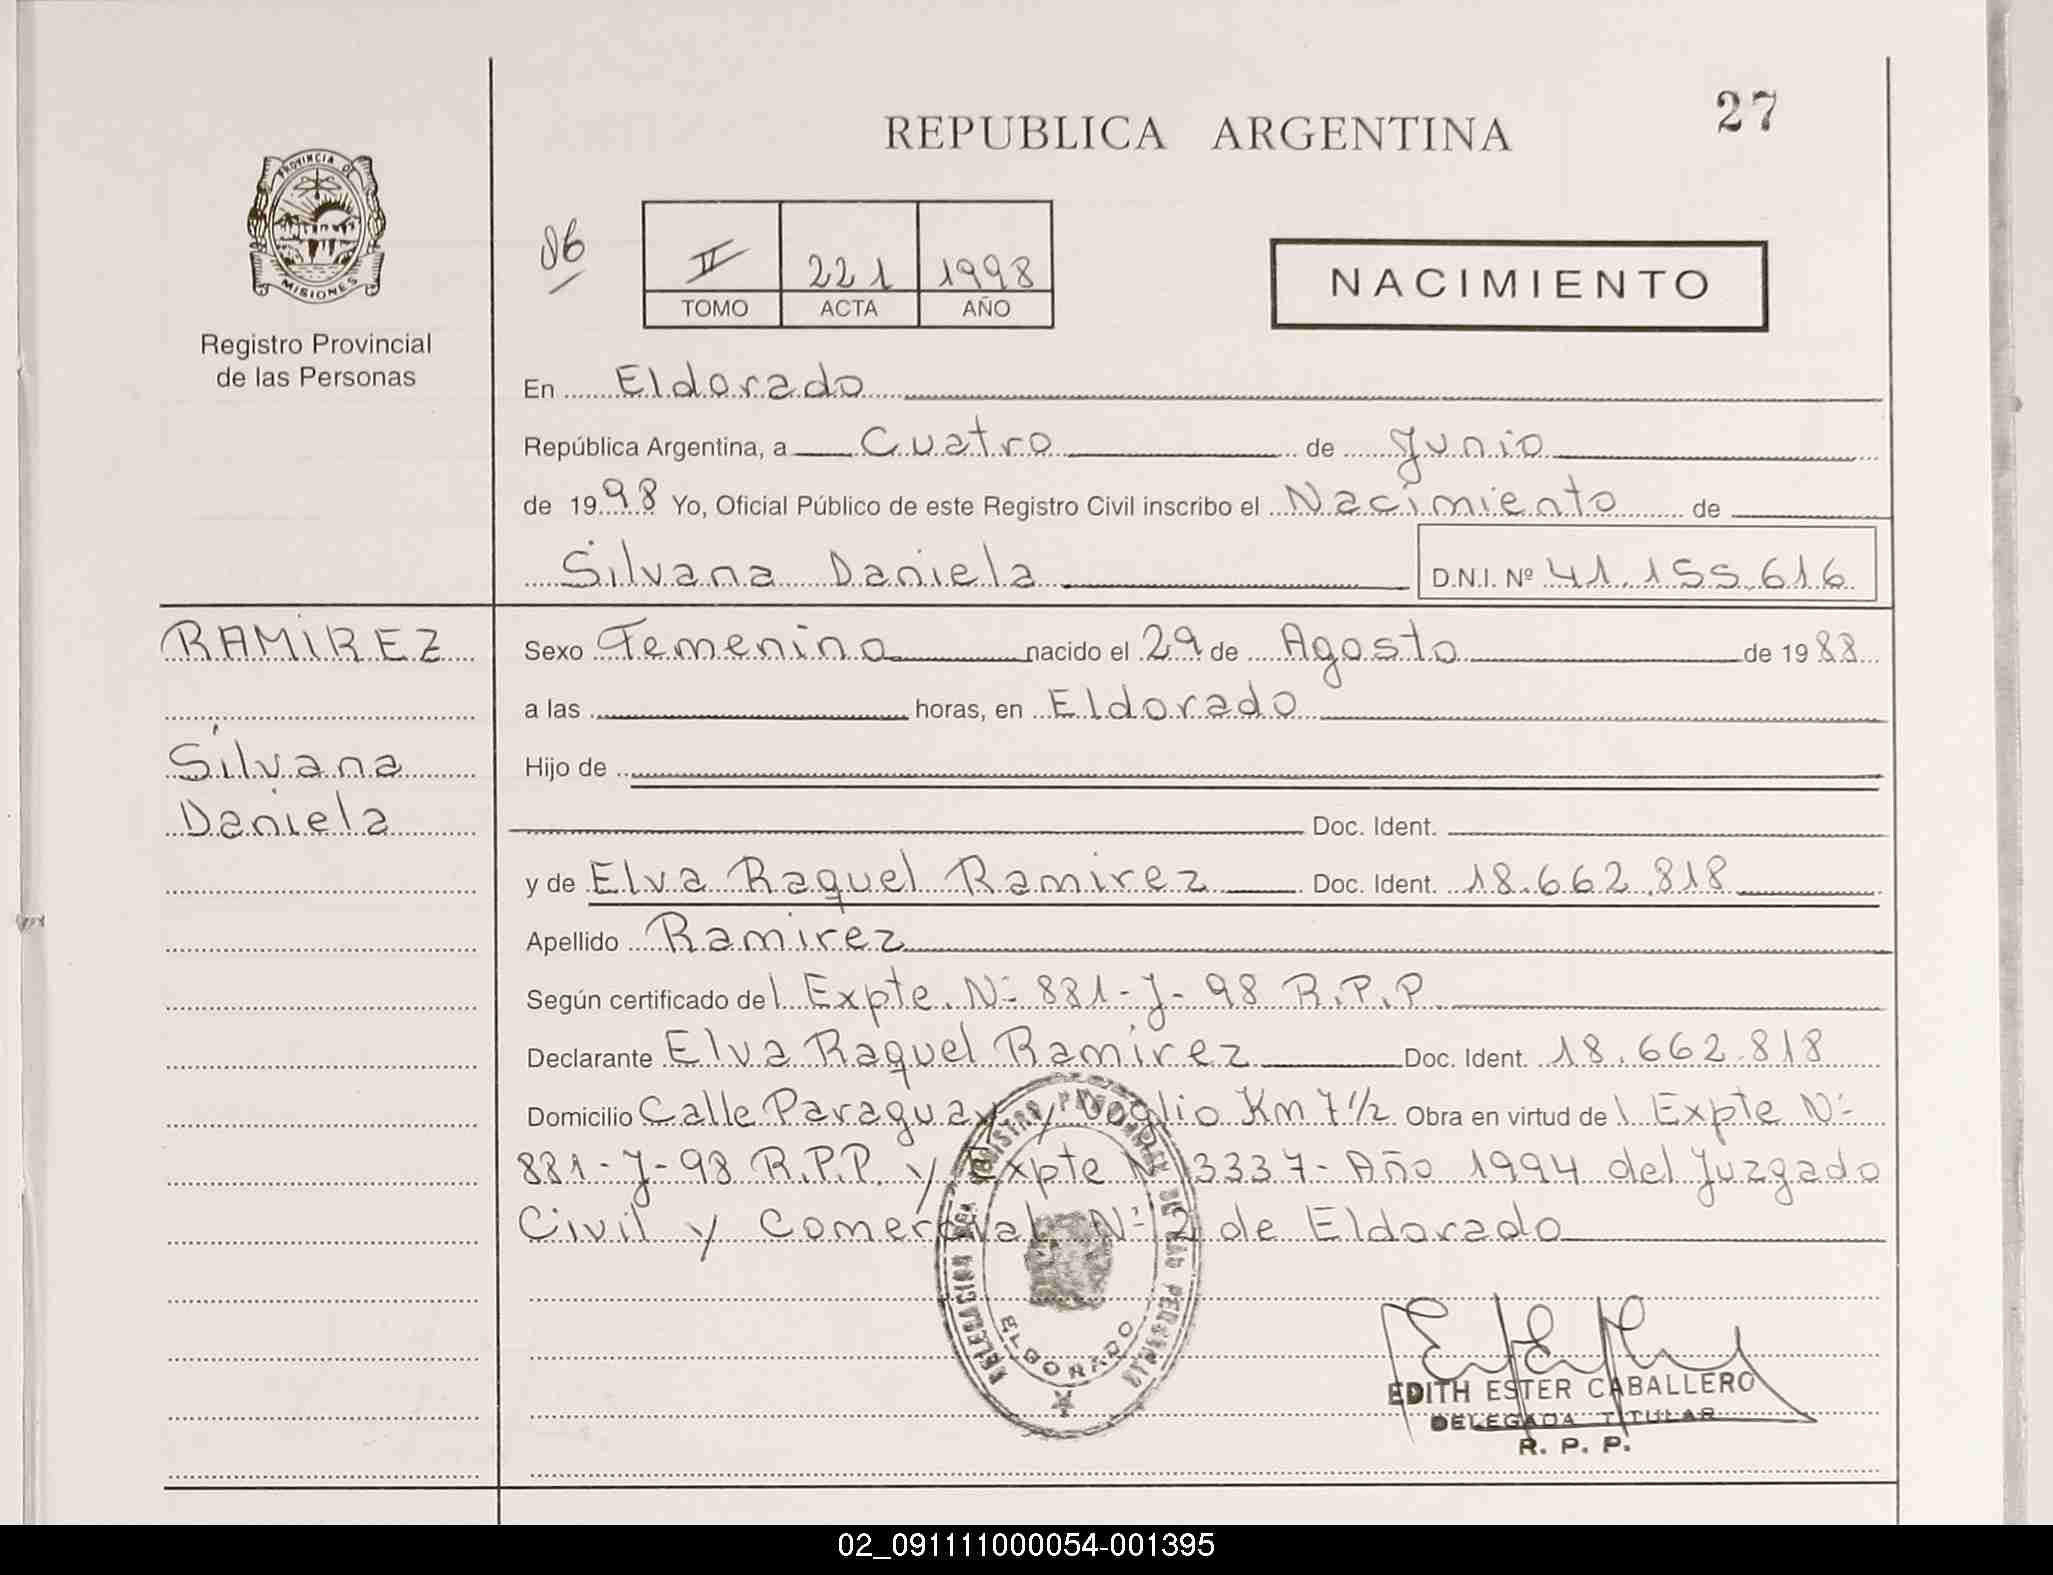 27
REPUBLICA ARGENTINA
PROVINCIA DE
MISIONES
Registro Provincial
de las Personas
06
II 221 1998
TOMO ACTA AÑO
NACIMIENTO
En Eldorado
República Argentina, a Cuatro de Junio
de 1998 Yo, Oficial Público de este Registro Civil inscribo el Nacimiento de
Silvana Daniela D.N.I. Nº 41.155.616
RAMIREZ
Silvana
Daniela
Sexo Femenino nacido el 29 de Agosto de 1988
a las horas, en Eldorado
Hijo de
Doc. Ident.
y de Elva Raquel Ramirez Doc. Ident. 18.662.818
Apellido Ramirez
Según certificado del Expte. Nº 881-J-98 R.P.P.
Declarante Elva Raquel Ramirez Doc. Ident. 18.662.818
Domicilio Calle Paraguay y Km 7 1/2 Obra en virtud del Expte Nº
881-J-98 R.P.P. y Expte Nº 3337-Año 1994 del Juzgado
Civil y Comercial Nº 2 de Eldorado
DE LAS PERSONAS
ELDORADO
EDITH ESTER CABALLERO
DELEGADA TITULAR
R. P. P.
02_091111000054-001395